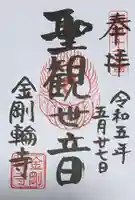 奉拝
令和五年
五月廿七日
聖観世音
金剛輪寺